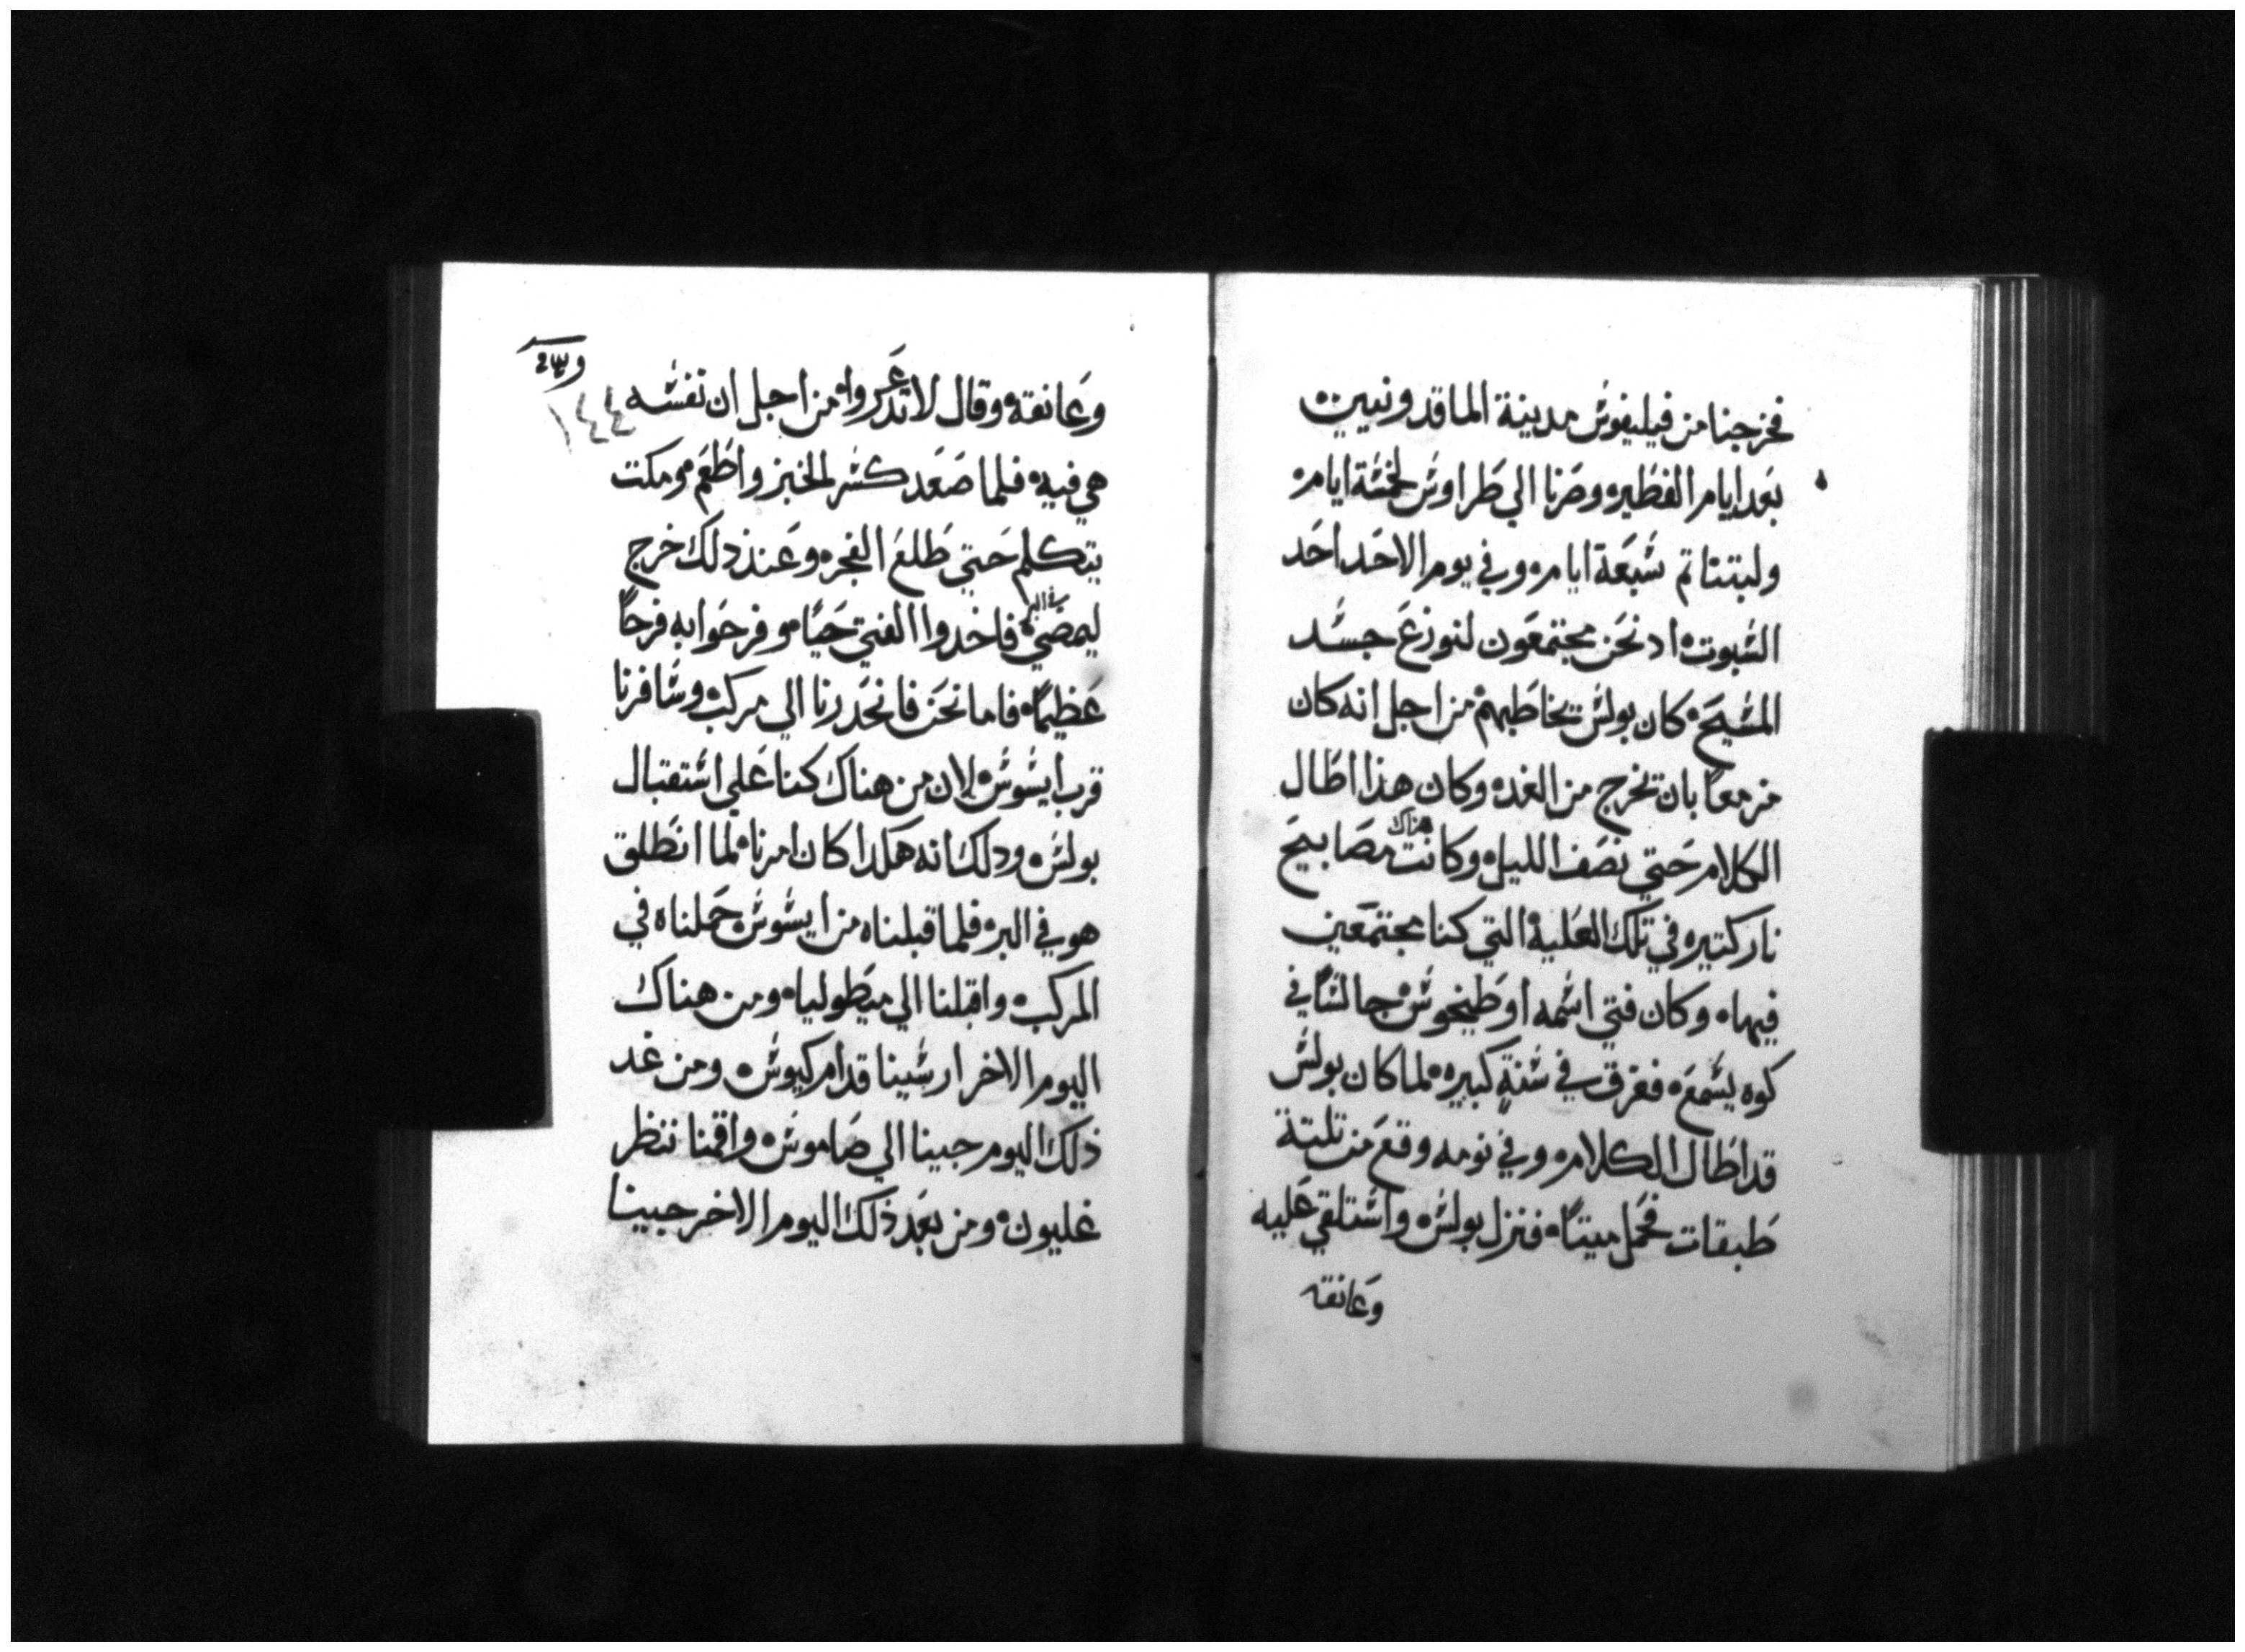 فخرجنا من فيليفوش مدينة الماقدونيين
بعد ايام الفطير ه وصرنا الي طراوش لخمسة ايام ه
ولبتنا تم سبعة ايام ه وفي يوم الاحد احد
السبوت ه اد نحن مجتمعون لنوزع جسد
المسيح ه كان بولس يخاطبهم من اجل انه كان
مزمعا بان يخرج من الغد ه وكان هذا اطال
الكلام حتي نصف الليل ه وكانت هناك مصابيح
نار كتيره في تلك العلية التي كنا مجتمعين
فيها ه وكان فتي اسمه اوطيخوس جالسًا في
كوه يسمع ه فغرق في سنةٍ كبيره لما كان بولس
قد اطال الكلام ه وفي نومه وقع من تلتة
طبقات فحمل ميتاً ه فنزل بولس ه واستلقي عليه
وعانقه
١٤٤
وعانقه ه وقال لا تدعروا ه من اجل ان نفسه
هي فيه ه فلما صعد كسر الخبز واطعم ه ومكت
يتكلم حتي طلع الفجر ه وعند ذلك خرج
ليمضي ه فاخدوا الفتي حيًا ه وفرحوا به فرحاً
عظيماً ه فاما نحن فانحدرنا الي مركب ه وسافرنا
قرب ايسوس ه لان من هناك كنا علي استقبال
بولس ه ودلك انه هكدا كان امرنا ه لما انطلق
هو في البر ه فلما قبلناه من ايسوس ه حملناه في
المركب ه واقبلنا الي ميطوليا ه ومن هناك
اليوم الاخر ارسينا قدام كيوس ه ومن غد
ذلك اليوم جينا الي صاموس ه واقمنا ننظر
غليون ه ومن بعد ذلك اليوم الاخر جينا